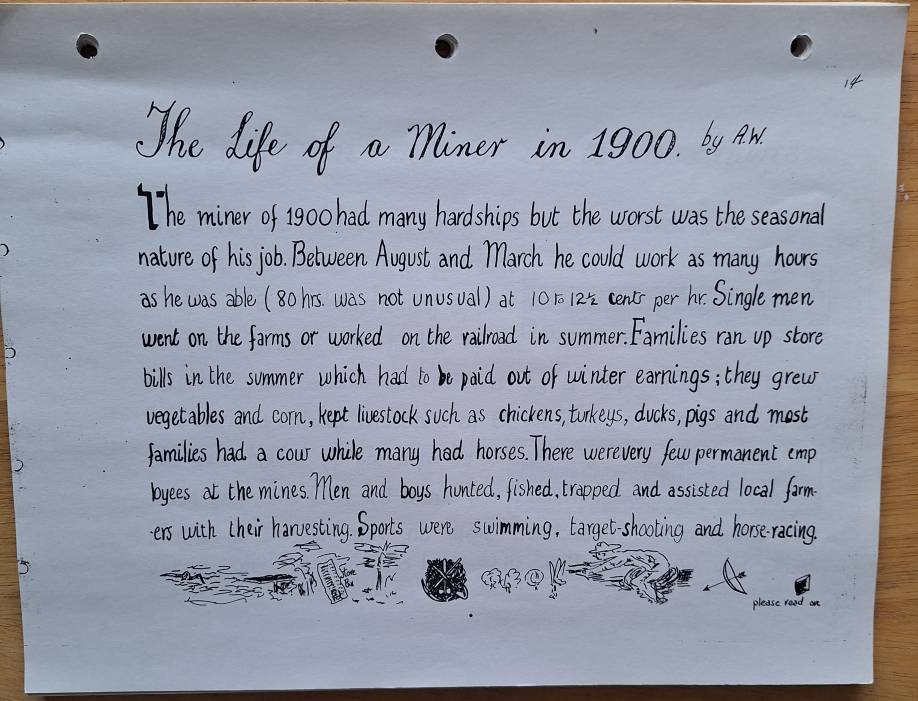 14
The Life of a Miner in 1900. by A.W.
The miner of 1900 had many hardships but the worst was the seasonal
nature of his job. Between August and March he could work as many hours
as he was able (80 hrs. was not unusual) at 10 to 12½ cents per hr. Single men
went on the farms or worked on the railroad in summer. Families ran up store
bills in the summer which had to be paid out of winter earnings; they grew
vegetables and corn, kept livestock such as chickens, turkeys, ducks, pigs and most
families had a cow while many had horses. There were very few permanent emp
loyees at the mines. Men and boys hunted, fished, trapped and assisted local farm-
-ers with their harvesting. Sports were swimming, target-shooting and horse-racing.
Store
Bill
please read on